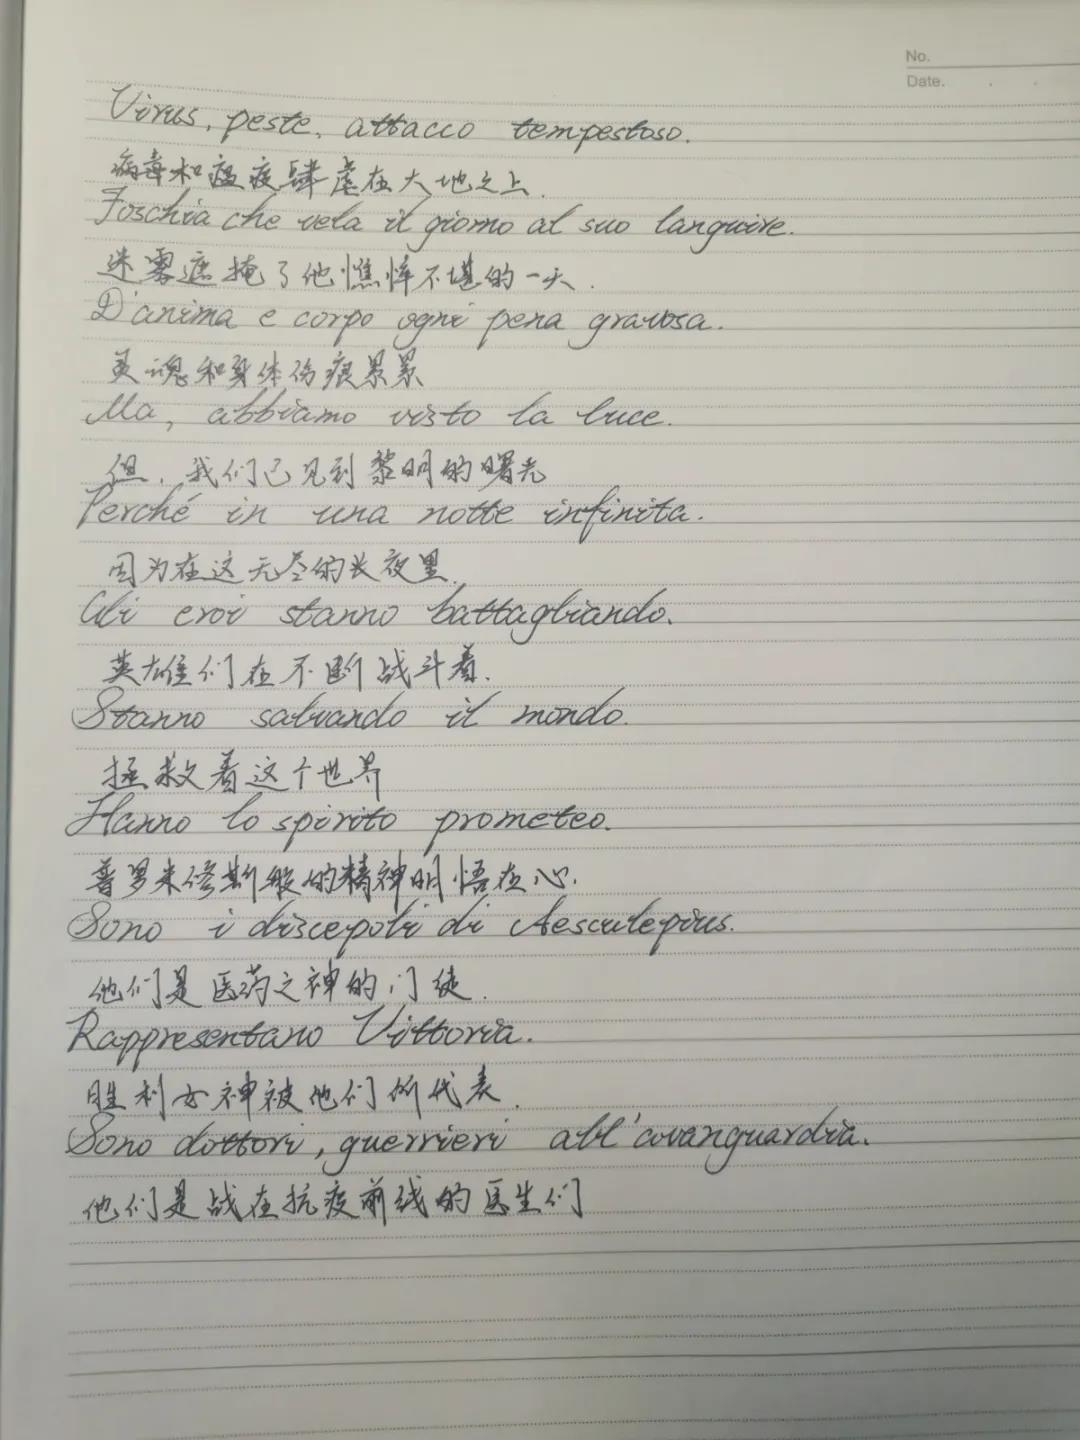 No.
Date.
Virus, peste, attacco tempestoso.
病毒和瘟疫肆虐在大地之上.
Foschia che vela il giorno al suo languire.
迷雾遮掩了他憔悴不堪的一天.
D'anima e corpo ogni pena gravosa.
灵魂和身体伤痕累累
Ma, abbiamo visto la luce.
但, 我们已见到黎明的曙光
Perché in una notte infinita.
因为在这无尽的长夜里.
Gli eroi stanno battagliando.
英雄们在不断战斗着.
Stanno salvando il mondo.
拯救着这个世界
Hanno lo spirito prometeo.
普罗米修斯般的精神明悟在心.
Sono i discepoli di Aesculepius.
他们是医药之神的门徒.
Rappresentano Vittoria.
胜利女神被他们所代表.
Sono dottori, guerrieri all'avanguardia.
他们是战在抗疫前线的医生们